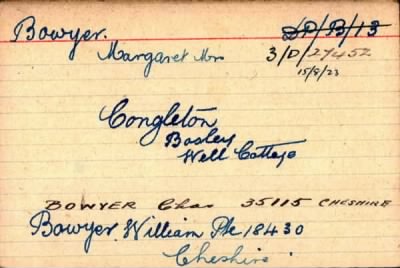 Bowyer. DP/B/13
Margaret Mrs 3/D/27452
15/8/23
Congleton
Bosley
Well Cottage
BOWYER Chas 35115 CHESHIRE
Bowyer. William Pte 18430
Cheshire.